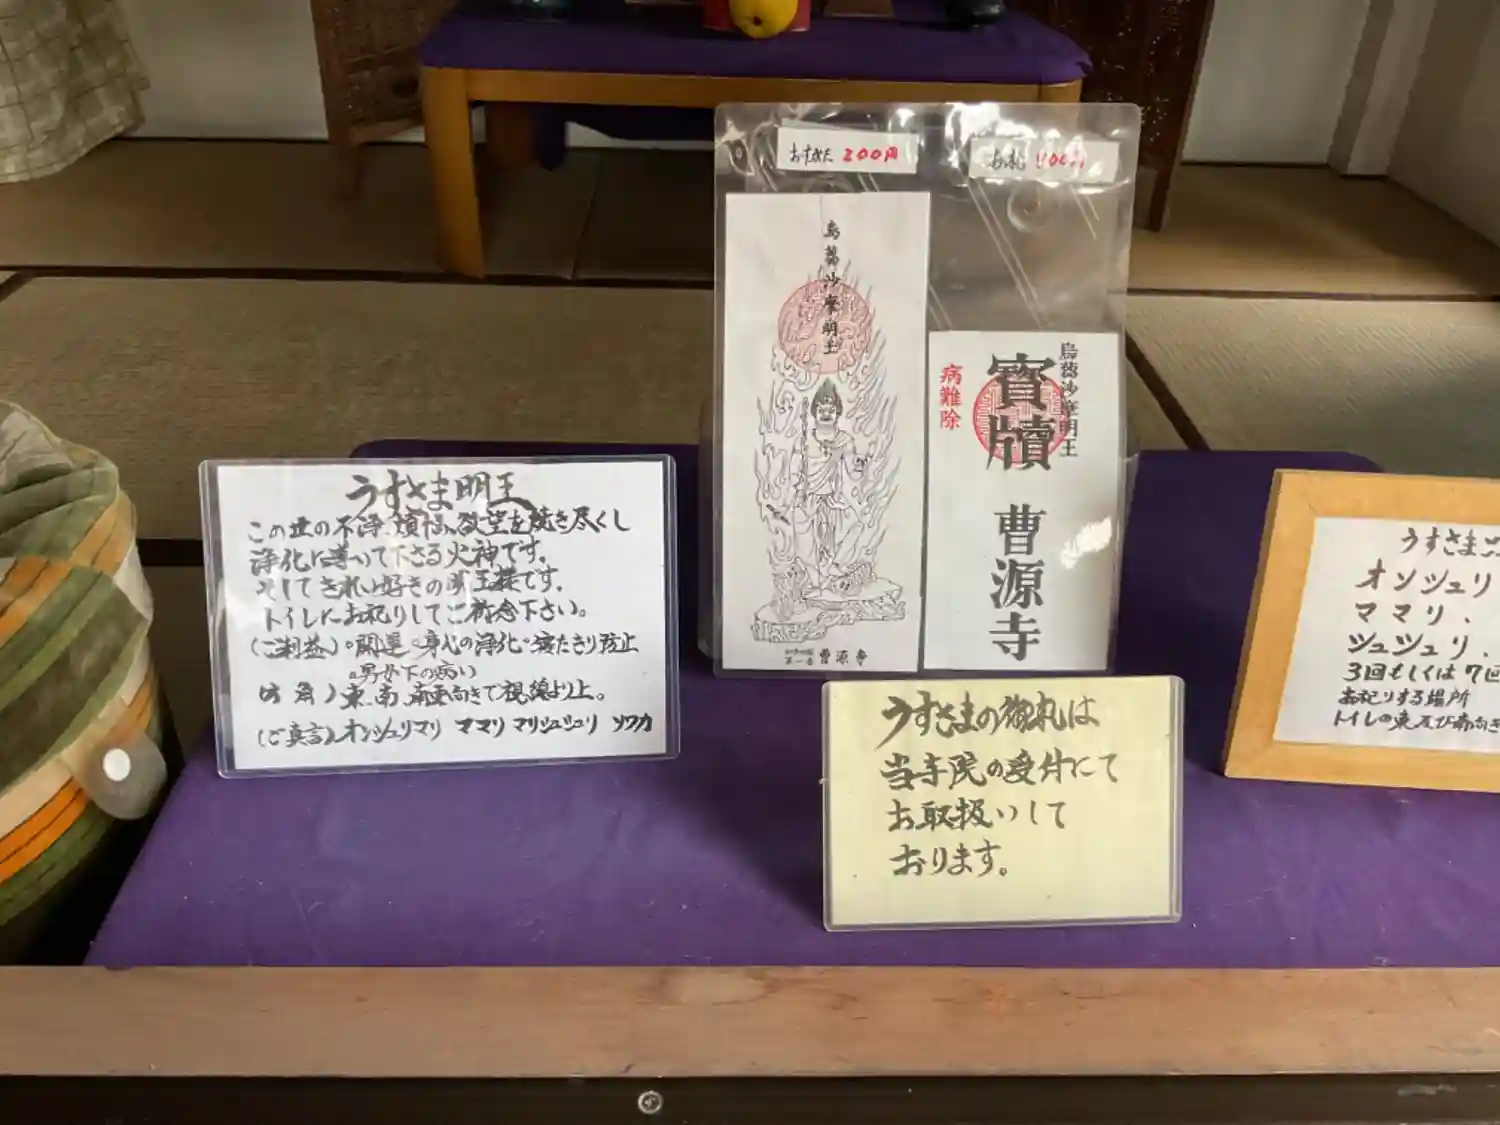 おすがた 200円
お札
烏蒭沙摩明王
曹源寺
烏蒭沙摩明王
寳牘
病難除
曹源寺
うすさま明王
この世の不浄、煩悩、欲望を焼き尽くし
浄化に導いて下さる火神です。
そしてきれい好きの明王様です。
トイレにお祀りしてご祈念下さい。
(ご利益)◦開運◦身心の浄化◦寝たきり防止
◦男女下の病い
東、南、向きで視線より上。
(ご真言)オンシュリマリ ママリ マリシュシュリ ソワカ
うすさまの御札は
当寺院の受付にて
お取扱いして
おります。
うすさま
オンシュリ
ママリ、
シュシュリ、
3回もしくは7回
お祀りする場所
トイレの東及び南向き